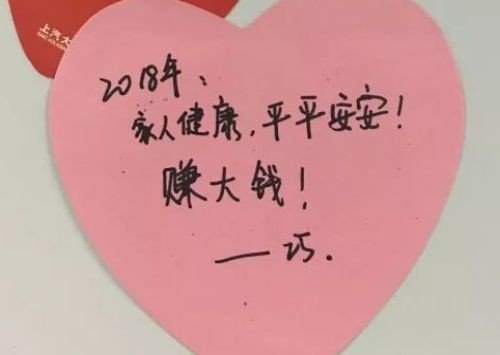 上汽大
2018年：
家人健康，平平安安！
赚大钱！
——巧.